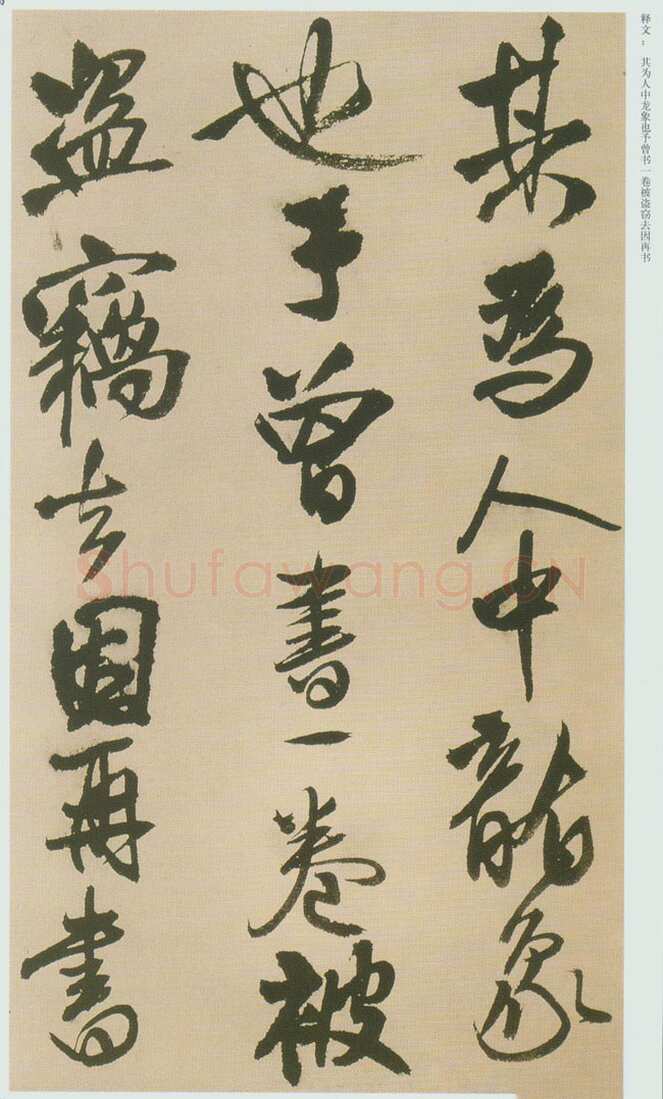 释文：其为人中龙象也予曾书一卷被盗窃去因再书
其為人中龍象
也予曾書一卷被
盜竊去因再書
Shufawang.CN